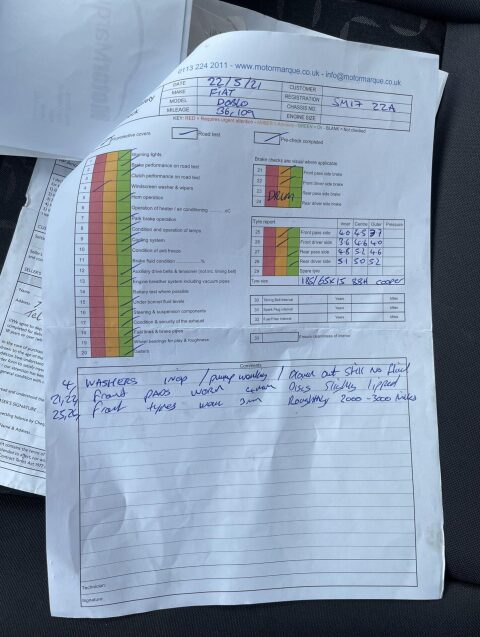 0113 224 2011 - www.motormarque.co.uk - info@motormarque.co.uk
DATE 22/5/21 CUSTOMER
MAKE FIAT REGISTRATION SM17 ZZA
MODEL DOBLO CHASSIS NO
MILEAGE 36,109 ENGINE SIZE
KEY: RED = Requires urgent attention - GREEN = Ok - BLANK = Not checked
Protective covers Road test Pre-check completed
1 Warning lights
2 Brake performance on road test
3 Clutch performance on road test
4 Windscreen washer & wipers
5 Horn operation
6 Operation of heater / air conditioning °C
7 Park brake operation
8 Condition and operation of lamps
9 Cooling system
10 Condition of anti freeze
11 Brake fluid condition %
12 Auxiliary drive belts & tensioner (not inc. timing belt)
13 Engine breather system including vacuum pipes
14 Battery test where possible
15 Under bonnet fluid levels
16 Steering & suspension components
17 Condition & security of the exhaust
18 Fuel lines & brake pipes
19 Wheel bearings for play & roughness
20 Gaiters
Brake checks are visual where applicable
21 Front pass side brake
22 Front driver side brake
23 Rear pass side brake
24 Rear driver side brake
DRUM
Tyre report Inner Centre Outer Pressure
25 Front pass side 40 45 39
26 Front driver side 36 46 40
27 Rear pass side 48 52 46
28 Rear driver side 51 50 52
29 Spare tyre
Tyre size 185/65x15 88H cooper
30 Timing Belt Interval Years Miles
31 Spark Plug Interval Years Miles
32 Fuel Filter Interval Years Miles
33 Ensure cleanliness of interior
Comments
4, WASHERS INOP / pump working / Blown out still No fluid
21,22, Front PADS WORN Discs Slightly lipped
25,26, Front tyres worn 3mm Roughly 2000 - 3000 Miles
Technician:
Signature: